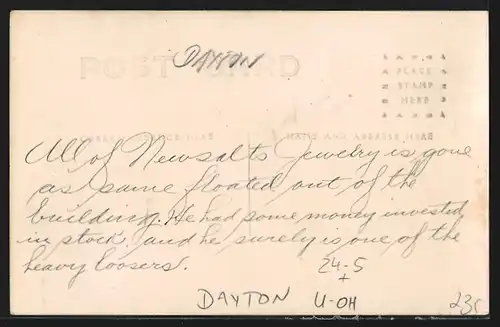 DAYTON
POST CARD
PLACE
STAMP
HERE
CORRESPONDENCE HERE
NAME AND ADDRESS HERE
All of Newsalts Jewelry is gone
as same floated out of the
building. He had some money invested
in stock. and he surely is one of the
heavy loosers.
24-5
+
DAYTON U-OH
23